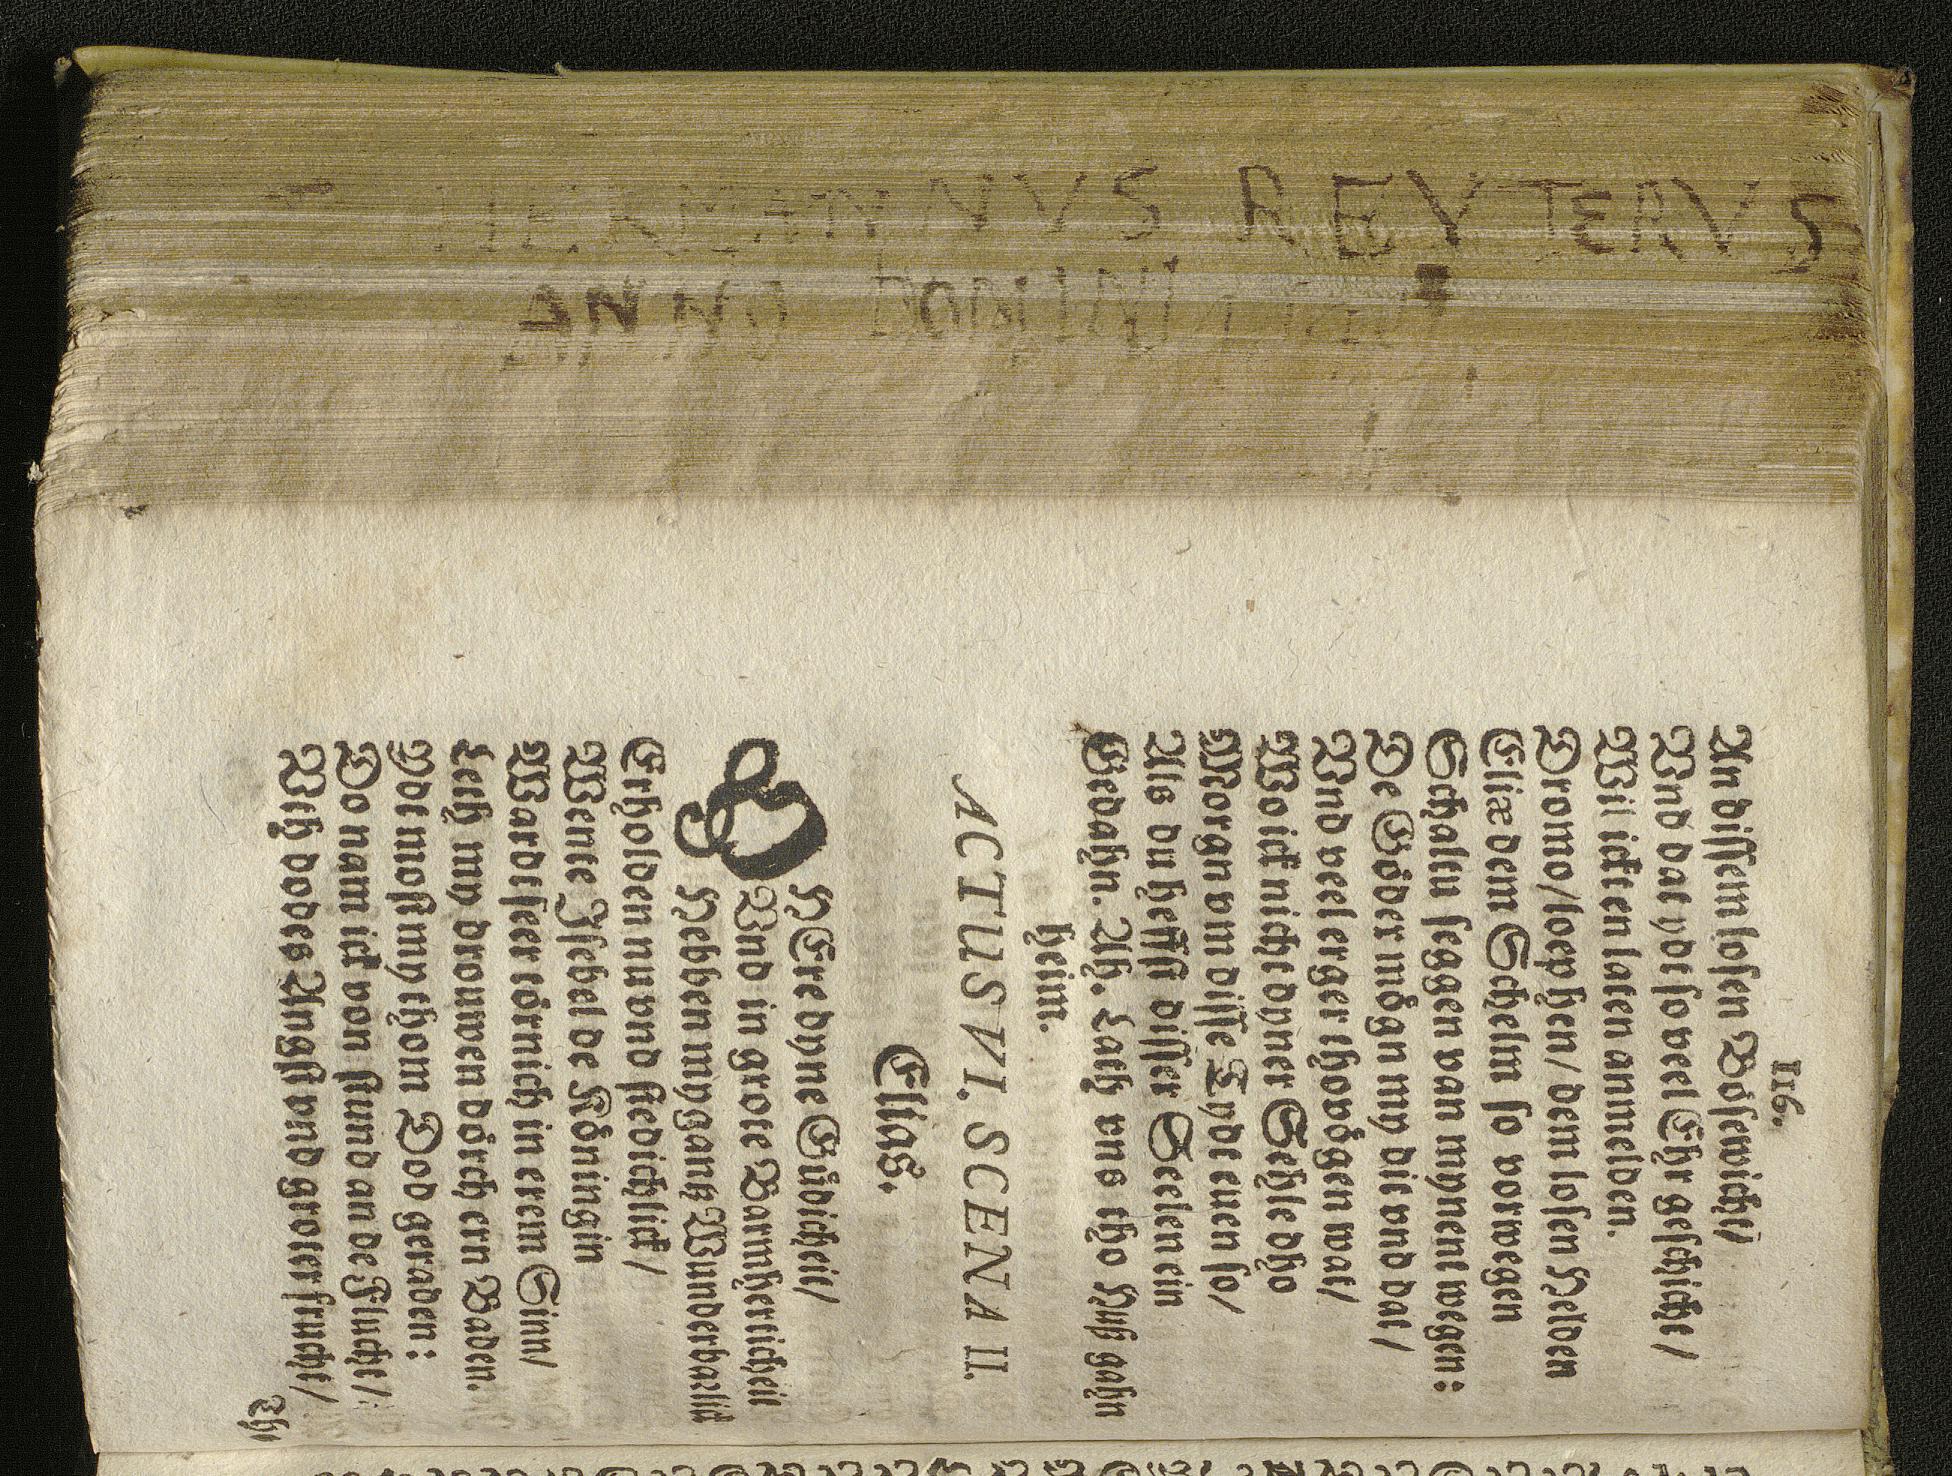 HERMANNVS REYTERVS
ANNO DOMINI
116.
An dissem losen Bösewicht/
Vnd dat yde so veel Ehr geschicht/
Wil ick en laten anmelden.
Dromo/ loep hen/ dem losen Helden
Eliæ dem Schelm so vorwegen
Schaltu seggen van mynent wegen:
De Göder mögn my dit vnd dat/
Vnd veel erger thovögen wat/
Wo ick nicht dyner Sehle dho
Morgn vm disse Tydt euen so/
Als du heffst disser Seelen ein
Gedahn. Ah. Lath vns tho Huß gahn
heim.
ACTUS VI. SCENA II.
Elias.
O HEre dyne Güdicheit/
Vnd in grote Barmherticheit
Hebben my gantz Wunderbarlick
Erholden nu vnd stedichlick/
Wente Jsebel de Köningin
Wardt seer törnich in erem Sinn/
Leth my drouwen dörch ern Baden.
Jdt most my thom Dod geraden:
Do nam ick von stund an de Flucht/
Veth dodes Angst vnd groter frucht/
Th